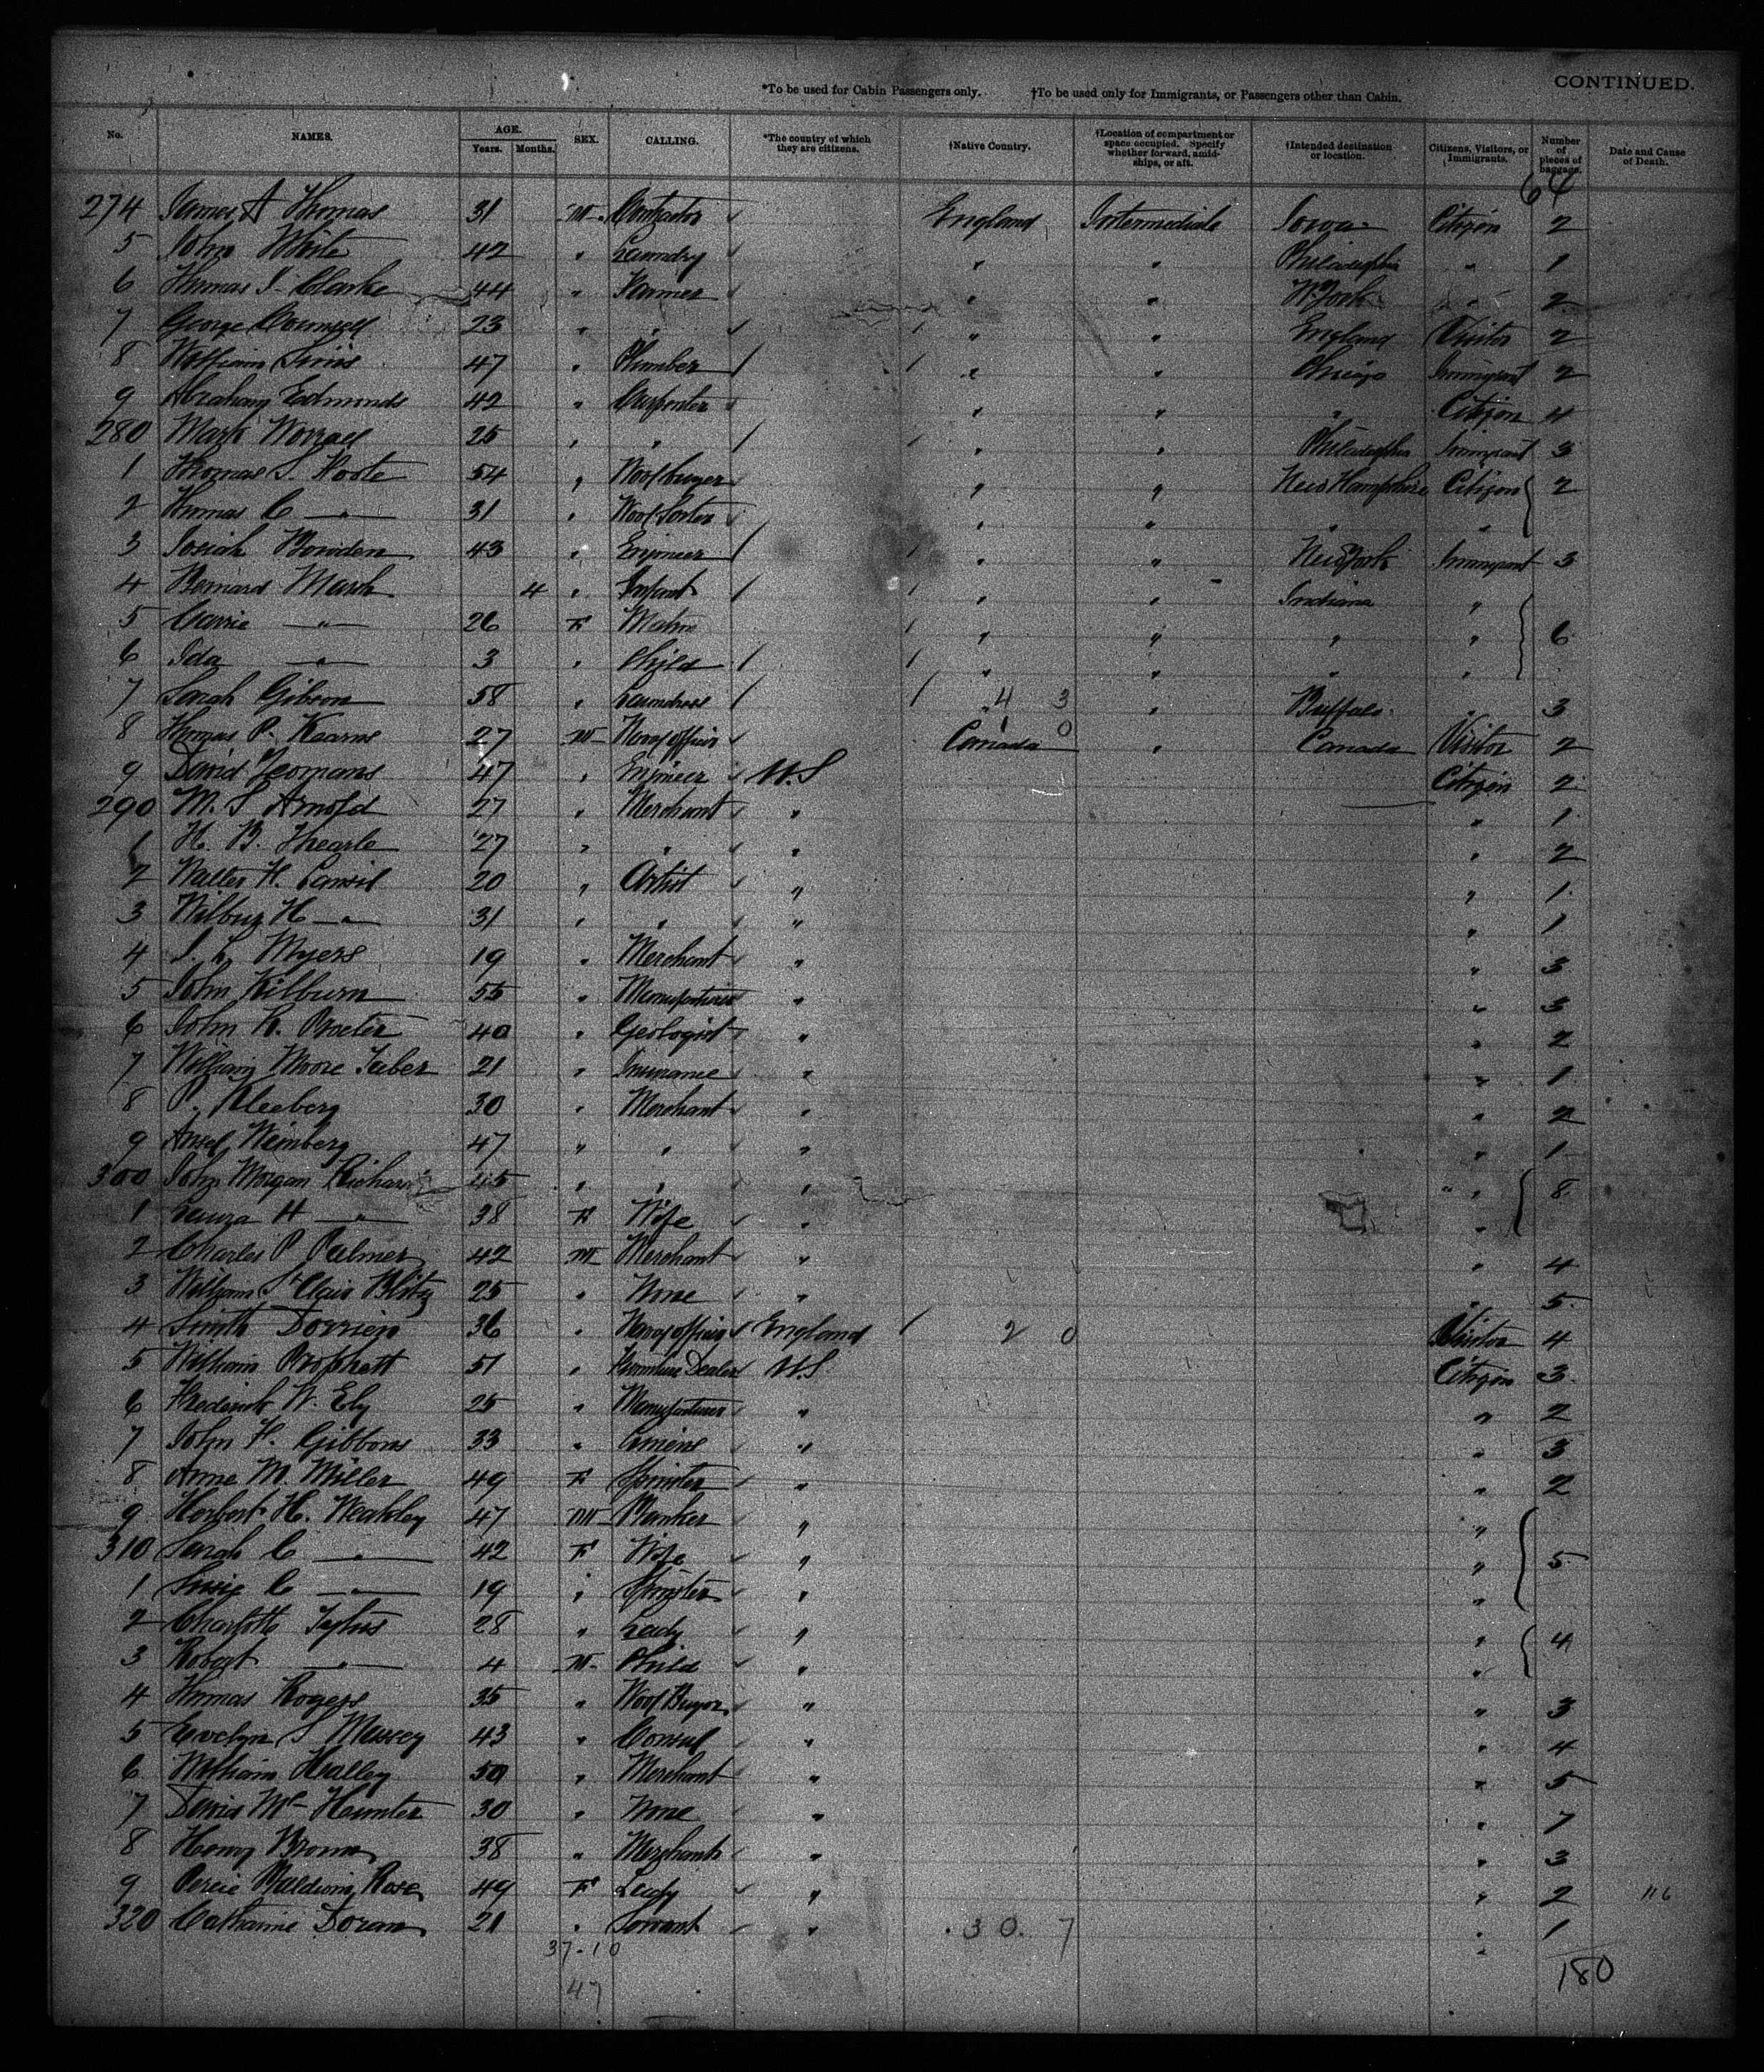 CONTINUED.
*To be used for Cabin Passengers only. †To be used only for Immigrants, or Passengers other than Cabin.
No. NAMES. AGE. Years. Months. SEX. CALLING. *The country of which they are citizens. †Native Country. †Location of compartment or space occupied. Specify whether forward, amidships, or aft. †Intended destination or location. Citizens, Visitors, or Immigrants. Number of pieces of baggage. Date and Cause of Death.
64
274 James A Thomas 31 M Contractor England Intermediate Iowa Citizen 2
5 John White 42 " Laundry " " Philadelphia " 1
6 Thomas J. Clarke 44 " Farmer " " N. York " 2
7 George Cornwell 23 " " " " England Visitor 2
8 William Sims 47 " Plumber " " Chicago Immigrant 2
9 Abraham Edmonds 42 " Carpenter " " " Citizen 4
280 Mark Worrall 25 " " " " Philadelphia Immigrant 3
1 Thomas S. Foote 54 " Wool buyer " " New Hampshire Citizen 2
2 Thomas C — " — 31 " Wool Sorter " " " "
3 Josiah Bowden 43 " Engineer " " New York Immigrant 3
4 Bernard Marsh 4 " Infant " " Indiana "
5 Carrie — " — 26 F Matron " " " " 6
6 Ida — " — 3 " Child " " "
7 Sarah Gibson 58 " Laundress " 4 3 " Buffalo " 3
8 Thomas P. Kearns 27 M Naval officer Canada 1 0 " Canada Visitor 2
9 David Yeomans 47 " Engineer U.S Citizen 2
290 M. S Arnold 27 " Merchant " " 1
1 H. B. Thearle 27 " " " " 2
2 Walter H. Lansil 20 " Artist " " 1
3 Wilbur H — " — 31 " " " " 1
4 S. L. Myers 19 " Merchant " " 3
5 John Kilburn 55 " Manufacturer " " 3
6 John R. Procter 40 " Geologist " " 2
7 William Moore 21 " Insurance " " 1
8 P. Kleeberg 30 " Merchant " " 2
9 Ansel Weinberg 47 " " " " 1
300 John Morgan Richards 45 " " " " 8
1 Laura H — " — 38 F Wife " "
2 Charles P. Palmer 42 M Merchant " " 4
3 William St Clair 25 " None " " 5
4 Smith Dorrien 36 " Naval officer England 2 0 Visitor 4
5 William Prophett 51 " Furniture Dealer U.S Citizen 3
6 Frederick W. Ely 25 " Manufacturer " " 2
7 John H. Gibbons 33 " " " 3
8 Anne M. Miller 49 F Spinster " " 2
9 Herbert H. Weakley 47 M Banker " "
310 Sarah C — " — 42 F Wife " " 5
1 Susie C — " — 19 " Spinster " "
2 Charlotte Tytus 28 " Lady " " 4
3 Robert — " — 4 M Child " "
4 Thomas Rogers 35 " Wool Buyer " " 3
5 Evelyn S Mussey 43 " Consul " " 4
6 William Halley 50 " Merchant " " 5
7 David Mc Hunter 30 " None " " 7
8 Henry Brown 38 " Merchant " " 3
9 Baldwin Rose 49 F Lady " " 2 116
320 Catharine Doran 21 " Servant " 30. 7 " 1
37-10
47
180